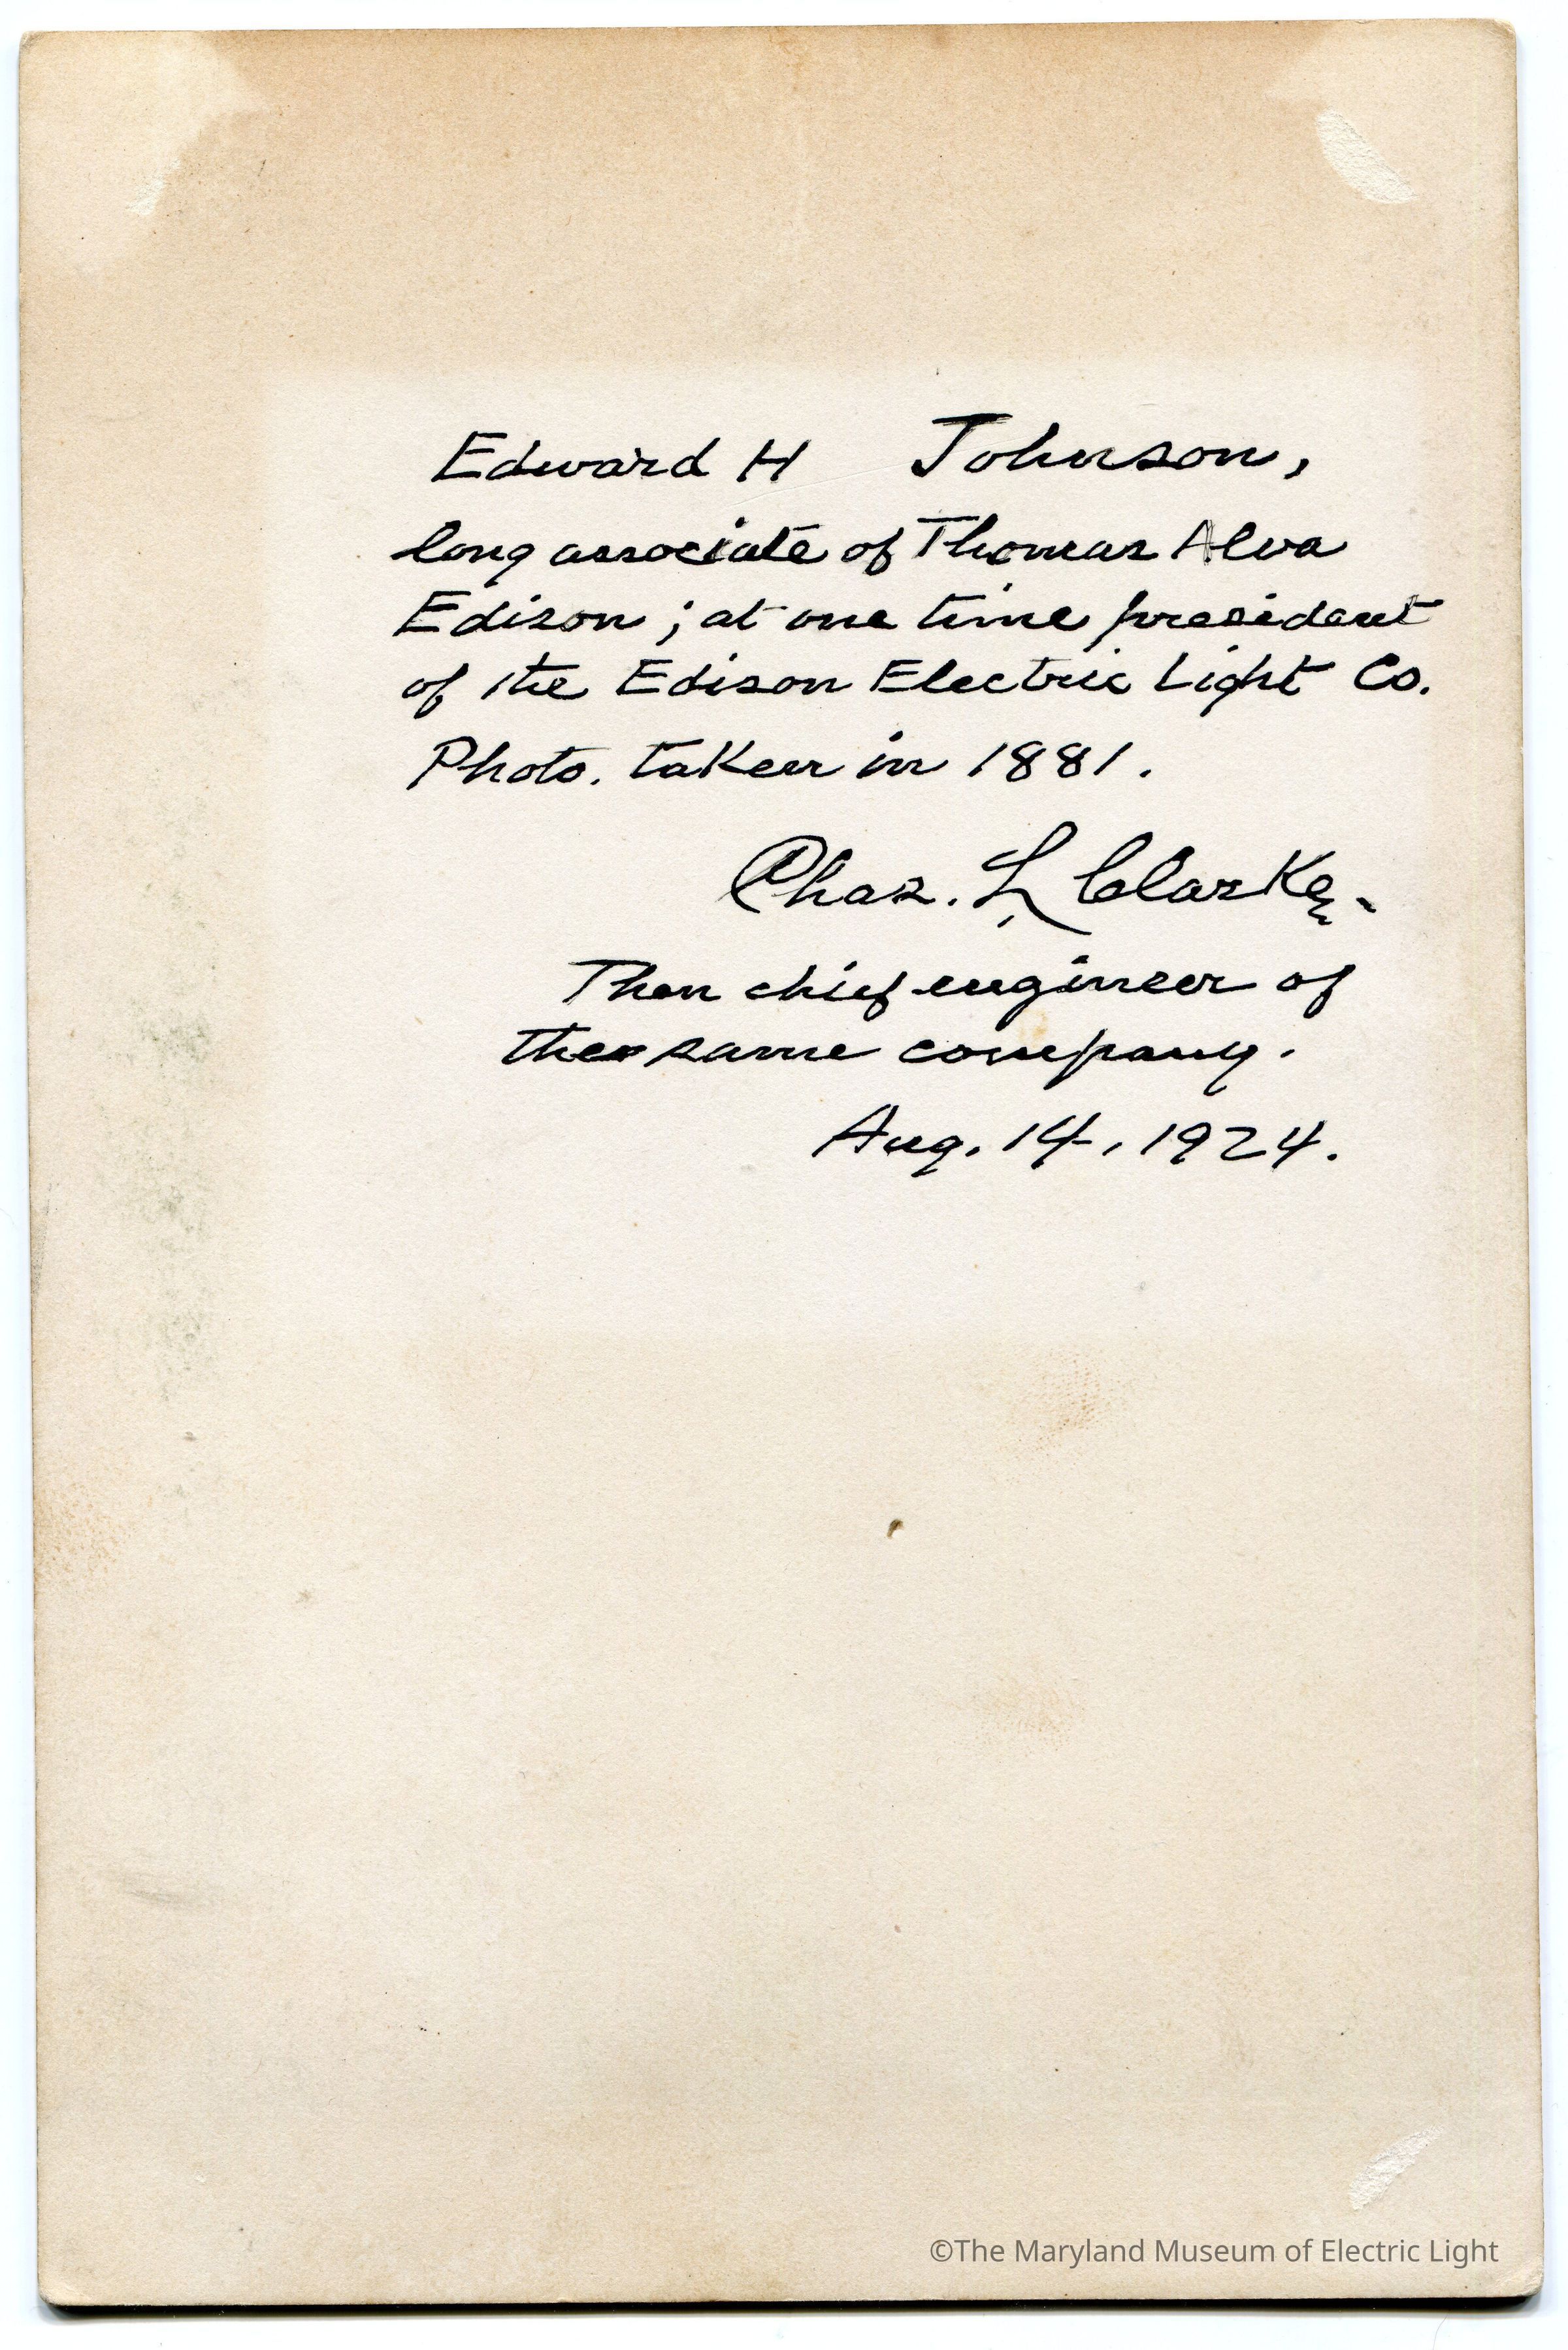 Edward H Johnson,
long associate of Thomas Alva
Edison ; at one time president
of the Edison Electric Light Co.
Photo. taken in 1881.
Chas. L. Clarke.
Then chief engineer of
the same company.
Aug. 14, 1924.
©The Maryland Museum of Electric Light